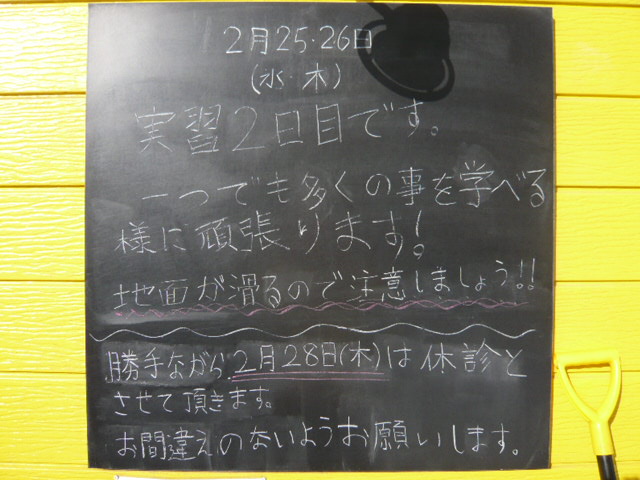 2月25・26日
(水・木)
実習2日目です。
一つでも多くの事を学べる
様に頑張ります!
地面が滑るので注意しましょう!!
勝手ながら2月28日(木)は休診と
させて頂きます。
お間違えのないようお願いします。